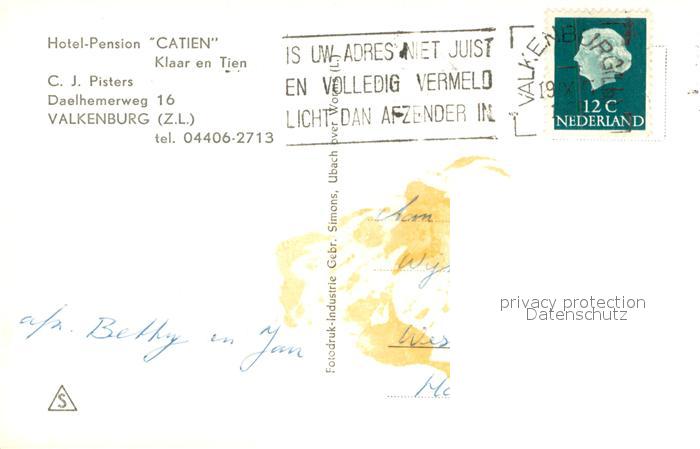 Hotel-Pension "CATIEN"
Klaar en Tien
C. J. Pisters
Daelhemerweg 16
VALKENBURG (Z.L.)
tel. 04406-2713
IS UW ADRES NIET JUIST
EN VOLLEDIG VERMELD
LICHT DAN AFZENDER IN
VALKENBURG
19
12 C
NEDERLAND
Fotodruk-Industrie Gebr. Simons, Ubach over Worms (L.)
afz. Bethy en Jan
S
privacy protection
Datenschutz